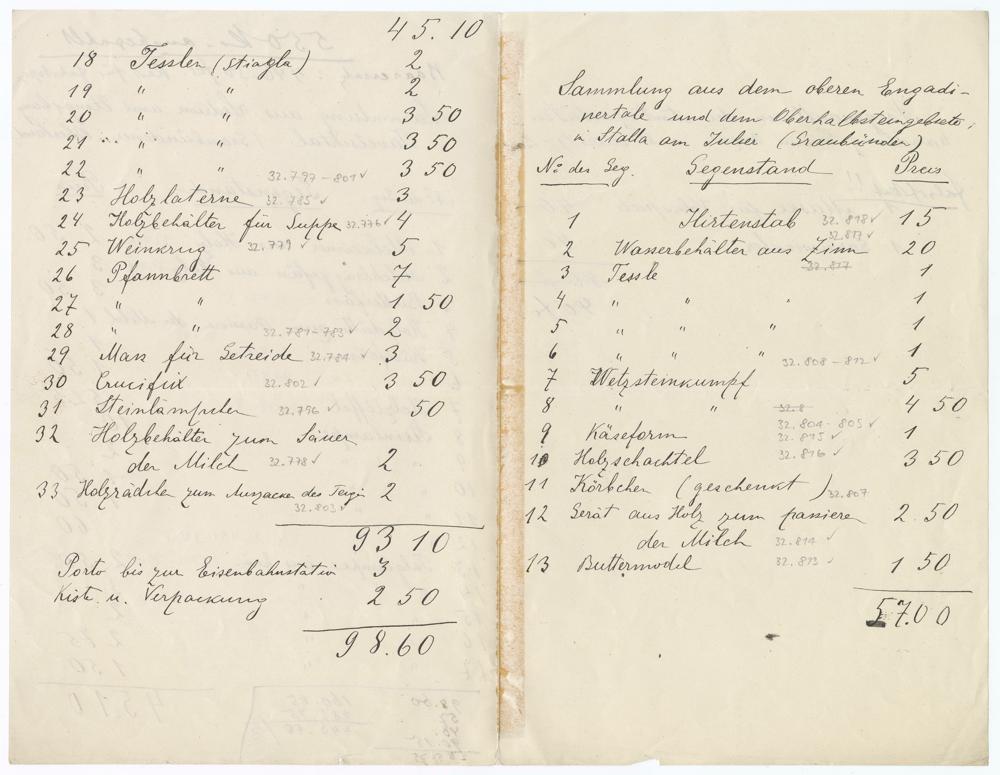 45.10
18 Tesslen (Stiagla) 2
19 " " 2
20 " " 3 50
21 " " 3 50
22 " " 32.797-801 ✓ 3 50
23 Holzlaterne 32.785 ✓ 3
24 Holzbehälter für Suppe 32.776 ✓ 4
25 Weinkrug 32.779 ✓ 5
26 Pfannbrett 7
27 " " 1 50
28 " " 32.781-783 ✓ 2
29 Mass für Getreide 32.784 ✓ 3
30 Crucifix 32.802 ✓ 3 50
31 Steinlämpchen 32.796 ✓ 50
32 Holzbehälter zum Säuer
der Milch 32.778 ✓ 2
33 Holzrädchen zum Auszacken des Teiges 2
32.803 ✓
93 10
Porto bis zur Eisenbahnstation 3
Kiste u. Verpackung 2 50
98.60
Sammlung aus dem oberen Engadi-
nertale und dem Oberhalbsteingebiete,
in Stalla am Julier (Graubünden)
No des Geg. Gegenstand Preis
1 Hirtenstab 32.818 ✓ 15
32.817 ✓
2 Wasserbehälter aus Zinn 20
32.817
3 Tessle 1
4 " " " 1
5 " " " 1
6 " " " 32.808-812 ✓ 1
7 Wetzsteinkumpf 5
8 " " 32.8 4 50
32.804-805 ✓
9 Käseform 32.815 ✓ 1
10 Holzschachtel 32.816 ✓ 3 50
11 Körbchen (geschenkt) 32.807
12 Gerät aus Holz zum passieren 2.50
der Milch 32.814 ✓
13 Buttermodel 32.813 ✓ 1 50
57.00